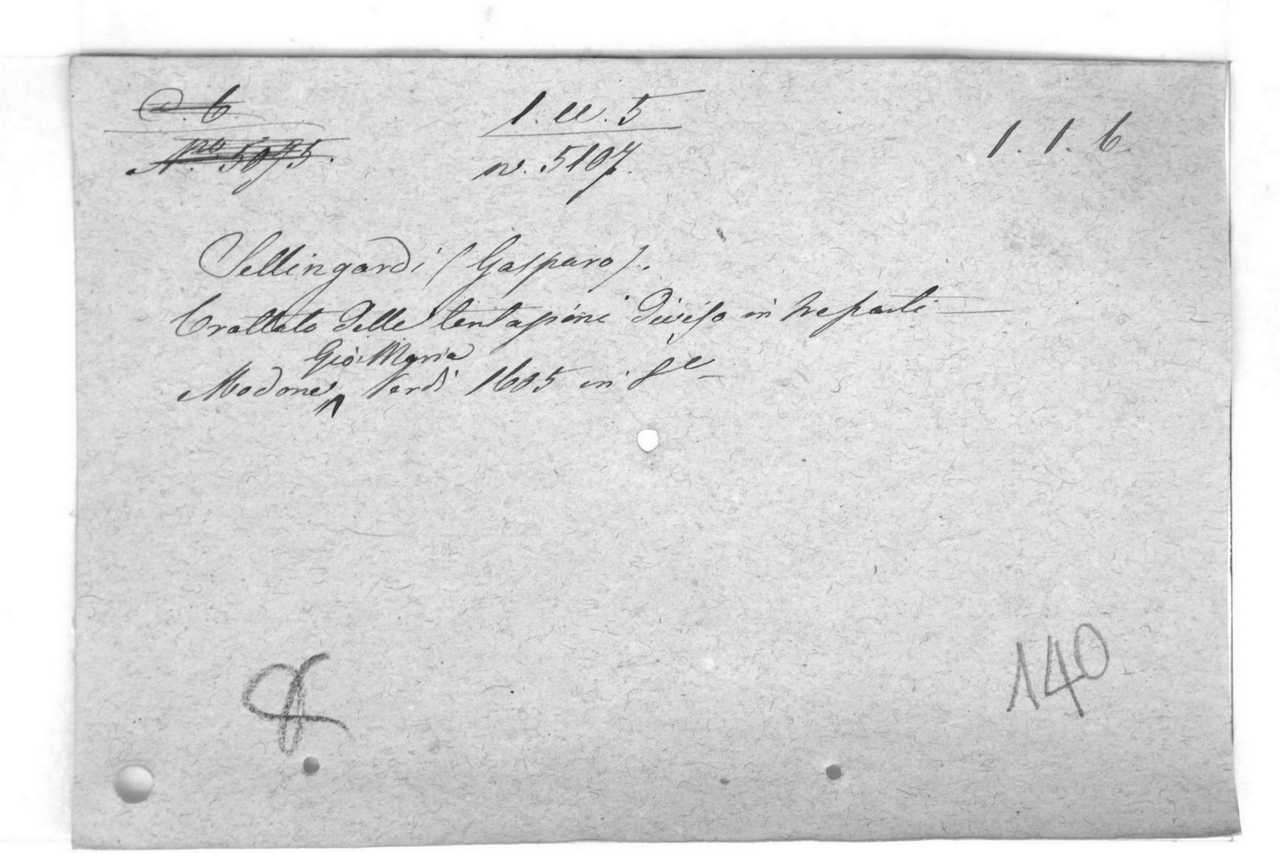 C. 6
N.ro 5075.
1. ee. 5
n. 5107.
1. 1. 6
Sellingardi (Gasparo).
Trattato delle tentazioni diviso in tre parti
Gio: Maria
Modone Verdi 1605 in 8e
140